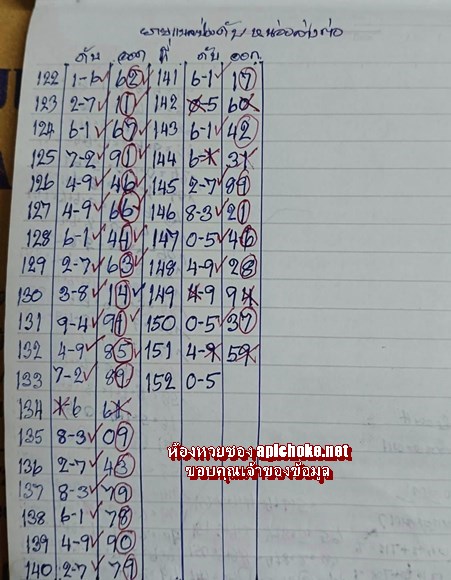 ดับ ออก ที่ ดับ ออก
122 1-6 62 141 6-1 17
123 2-7 11 142 0-5 60
124 6-1 67 143 6-1 42
125 7-2 91 144 6-1 31
126 4-9 46 145 2-7 89
127 4-9 66 146 8-3 21
128 6-1 44 147 0-5 46
129 2-7 63 148 4-9 28
130 3-8 14 149 4-9 94
131 9-4 91 150 0-5 37
132 4-9 85 151 4-9 59
133 7-2 89 152 0-5
134 1-6 61
135 8-3 09
136 2-7 43
137 8-3 79
138 6-1 78
139 4-9 90
140 2-7 79
ห้องหวยซอง apichoke.net
ขอบคุณเจ้าของข้อมูล